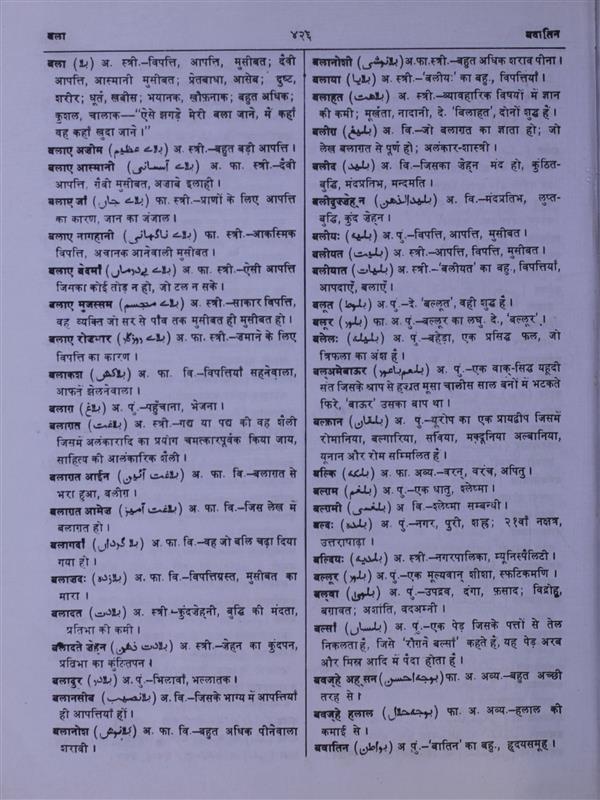 बला
४२६
बवातिन
बला (بلا) अ. स्त्री.–विपत्ति, आपत्ति, मुसीबत; दैवी
आपत्ति, आस्मानी मुसीबत; प्रेतबाधा, आसेब; दुष्ट,
शरीर; धूर्त, खबीस; भयानक, खौफ़नाक; बहुत अधिक;
कुशल, चालाक–“ऐसे झगड़े मेरी बला जाने, में कहाँ
वह कहाँ खुदा जाने।”
बलाए अज़ीम (بلاے عظیم) अ. स्त्री.–बहुत बड़ी आपत्ति।
बलाए आस्मानी (بلاے آسمانی) अ. फा. स्त्री.–दैवी
आपत्ति, ग़ैबी मुसीबत, अज़ाबे इलाही।
बलाए जाँ (بلاے جاں) अ. फा. स्त्री.–प्राणों के लिए आपत्ति
का कारण, जान का जंजाल।
बलाए नागहानी (بلاے ناگہانی) फा. स्त्री.–आकस्मिक
विपत्ति, अचानक आनेवाली मुसीबत।
बलाए बेदर्मां (بلاے بےدرماں) अ. फा. स्त्री.–ऐसी आपत्ति
जिसका कोई तोड़ न हो, जो टल न सके।
बलाए मुजस्सम (بلاے مجسم) अ. स्त्री.–साकार विपत्ति,
वह व्यक्ति जो सर से पाँव तक मुसीबत ही मुसीबत हो।
बलाए रोज़गार (بلاے روزگار) अ. फा. स्त्री.–ज़माने के लिए
विपत्ति का कारण।
बलाकश (بلاکش) अ. फा. वि.–विपत्तियाँ सहनेवाला,
आफ़तें झेलनेवाला।
बलाग़ (بلاغ) अ. पुं.–पहुँचाना, भेजना।
बलाग़त (بلاغت) अ. स्त्री.–गद्य या पद्य की वह शैली
जिसमें अलंकारादि का प्रयोग चमत्कारपूर्वक किया जाय,
साहित्य की आलंकारिक शैली।
बलाग़त आईन (بلاغت آئین) अ. फा. वि.–बलाग़त से
भरा हुआ, बलीग़।
बलाग़त आमेज़ (بلاغت آمیز) अ. फा. वि.–जिस लेख में
बलाग़त हो।
बलागर्दां (بلاگرداں) अ. फा. वि.–वह जो बलि चढ़ा दिया
गया हो।
बलाज़दः (بلازدہ) अ. फा. वि.–विपत्तिग्रस्त, मुसीबत का
मारा।
बलादत (بلادت) अ. स्त्री.–कुंदज़ेहनी, बुद्धि की मंदता,
प्रतिभा की कमी।
बलादते ज़ेहन (بلادت ذہن) अ. स्त्री.–ज़ेहन का कुंदपन,
प्रतिभा का कुंठितपन।
बलादुर (بلادر) अ. पुं.–भिलावाँ, भल्लातक।
बलानसीब (بلانصیب) अ. वि.–जिसके भाग्य में आपत्तियाँ
ही आपत्तियाँ हों।
बलानोश (بلانوش) अ. फा. वि.–बहुत अधिक पीनेवाला
शराबी।
बलानोशी (بلانوشی) अ.फा. स्त्री.–बहुत अधिक शराब पीना।
बलाया (بلایا) अ. स्त्री.–‘बलीयः’ का बहु., विपत्तियाँ।
बलाहत (بلاهت) अ. स्त्री.–व्यावहारिक विषयों में ज्ञान
की कमी; मूर्खता, नादानी, दे. ‘बिलाहत’, दोनों शुद्ध हैं।
बलीग़ (بلیغ) अ. वि.–जो बलाग़त का ज्ञाता हो; जो
लेख बलाग़त से पूर्ण हो; अलंकार-शास्त्री।
बलीद (بلید) अ. वि.–जिसका ज़ेहन मंद हो, कुंठित-
बुद्धि, मंदप्रतिभ, मन्दमति।
बलीदुज़्ज़ेहन (بلیدالذهن) अ. वि.–मंदप्रतिभ, लुप्त-
बुद्धि, कुंद ज़ेहन।
बलीयः (بلیه) अ. पुं.–विपत्ति, आपत्ति, मुसीबत।
बलीयत (بلیت) अ. स्त्री.–आपत्ति, विपत्ति, मुसीबत।
बलीयात (بلیات) अ. स्त्री.–‘बलीयत’ का बहु., विपत्तियाँ,
आपदाएँ, बलाएँ।
बलूत (بلوط) अ. पुं.–दे. ‘बल्लूत’, वही शुद्ध है।
बलूर (بلور) फा. अ. पुं.–बल्लूर का लघु. दे., ‘बल्लूर’।
बलेलः (بلیله) अ. पुं.–बहेड़ा, एक प्रसिद्ध फल, जो
त्रिफला का अंश है।
बलअमेबाऊर (بلعم باعور) अ. पुं.–एक वाक्-सिद्ध यहूदी
संत जिसके श्राप से हज़रत मूसा चालीस साल बनों में भटकते
फिरे, ‘बाऊर’ उसका बाप था।
बल्क़ान (بلقان) अ. पुं.–यूरोप का एक प्रायद्वीप जिसमें
रोमानिया, बल्गारिया, सर्विया, मक़्दूनिया अल्बानिया,
यूनान और रोम सम्मिलित हैं।
बल्कि (بلکه) अ. फा. अव्य.–वरन्, वरंच, अपितु।
बल्ग़म (بلغم) अ. पुं.–एक धातु, श्लेष्मा।
बल्ग़मी (بلغمی) अ. वि.–श्लेष्मा सम्बन्धी।
बल्दः (بلده) अ. पुं.–नगर, पुरी, शह्र; २१वाँ नक्षत्र,
उत्तराषाढ़ा।
बल्दियः (بلدیه) अ. स्त्री.–नगरपालिका, म्यूनिस्पैलिटी।
बल्लूर (بلور) अ. पुं.–एक मूल्यवान् शीशा, स्फटिकमणि।
बल्वा (بلوىٰ) अ. पुं.–उपद्रव, दंगा, फ़साद; विद्रोह,
बग़ावत; अशांति, बदअम्नी।
बल्साँ (بلساں) अ. पुं.–एक पेड़ जिसके पत्तों से तेल
निकलता है, जिसे ‘रौग़ने बल्साँ’ कहते हैं, यह पेड़ अरब
और मिस्र आदि में पैदा होता है।
बवज्हे अह् सन (بوجه احسن) फा. अ. अव्य.–बहुत अच्छी
तरह से।
बवज्हे हलाल (بوجه حلال) फा. अ. अव्य.–हलाल की
कमाई से।
बवातिन (بواطن) अ पुं.–‘बातिन’ का बहु., हृदयसमूह।